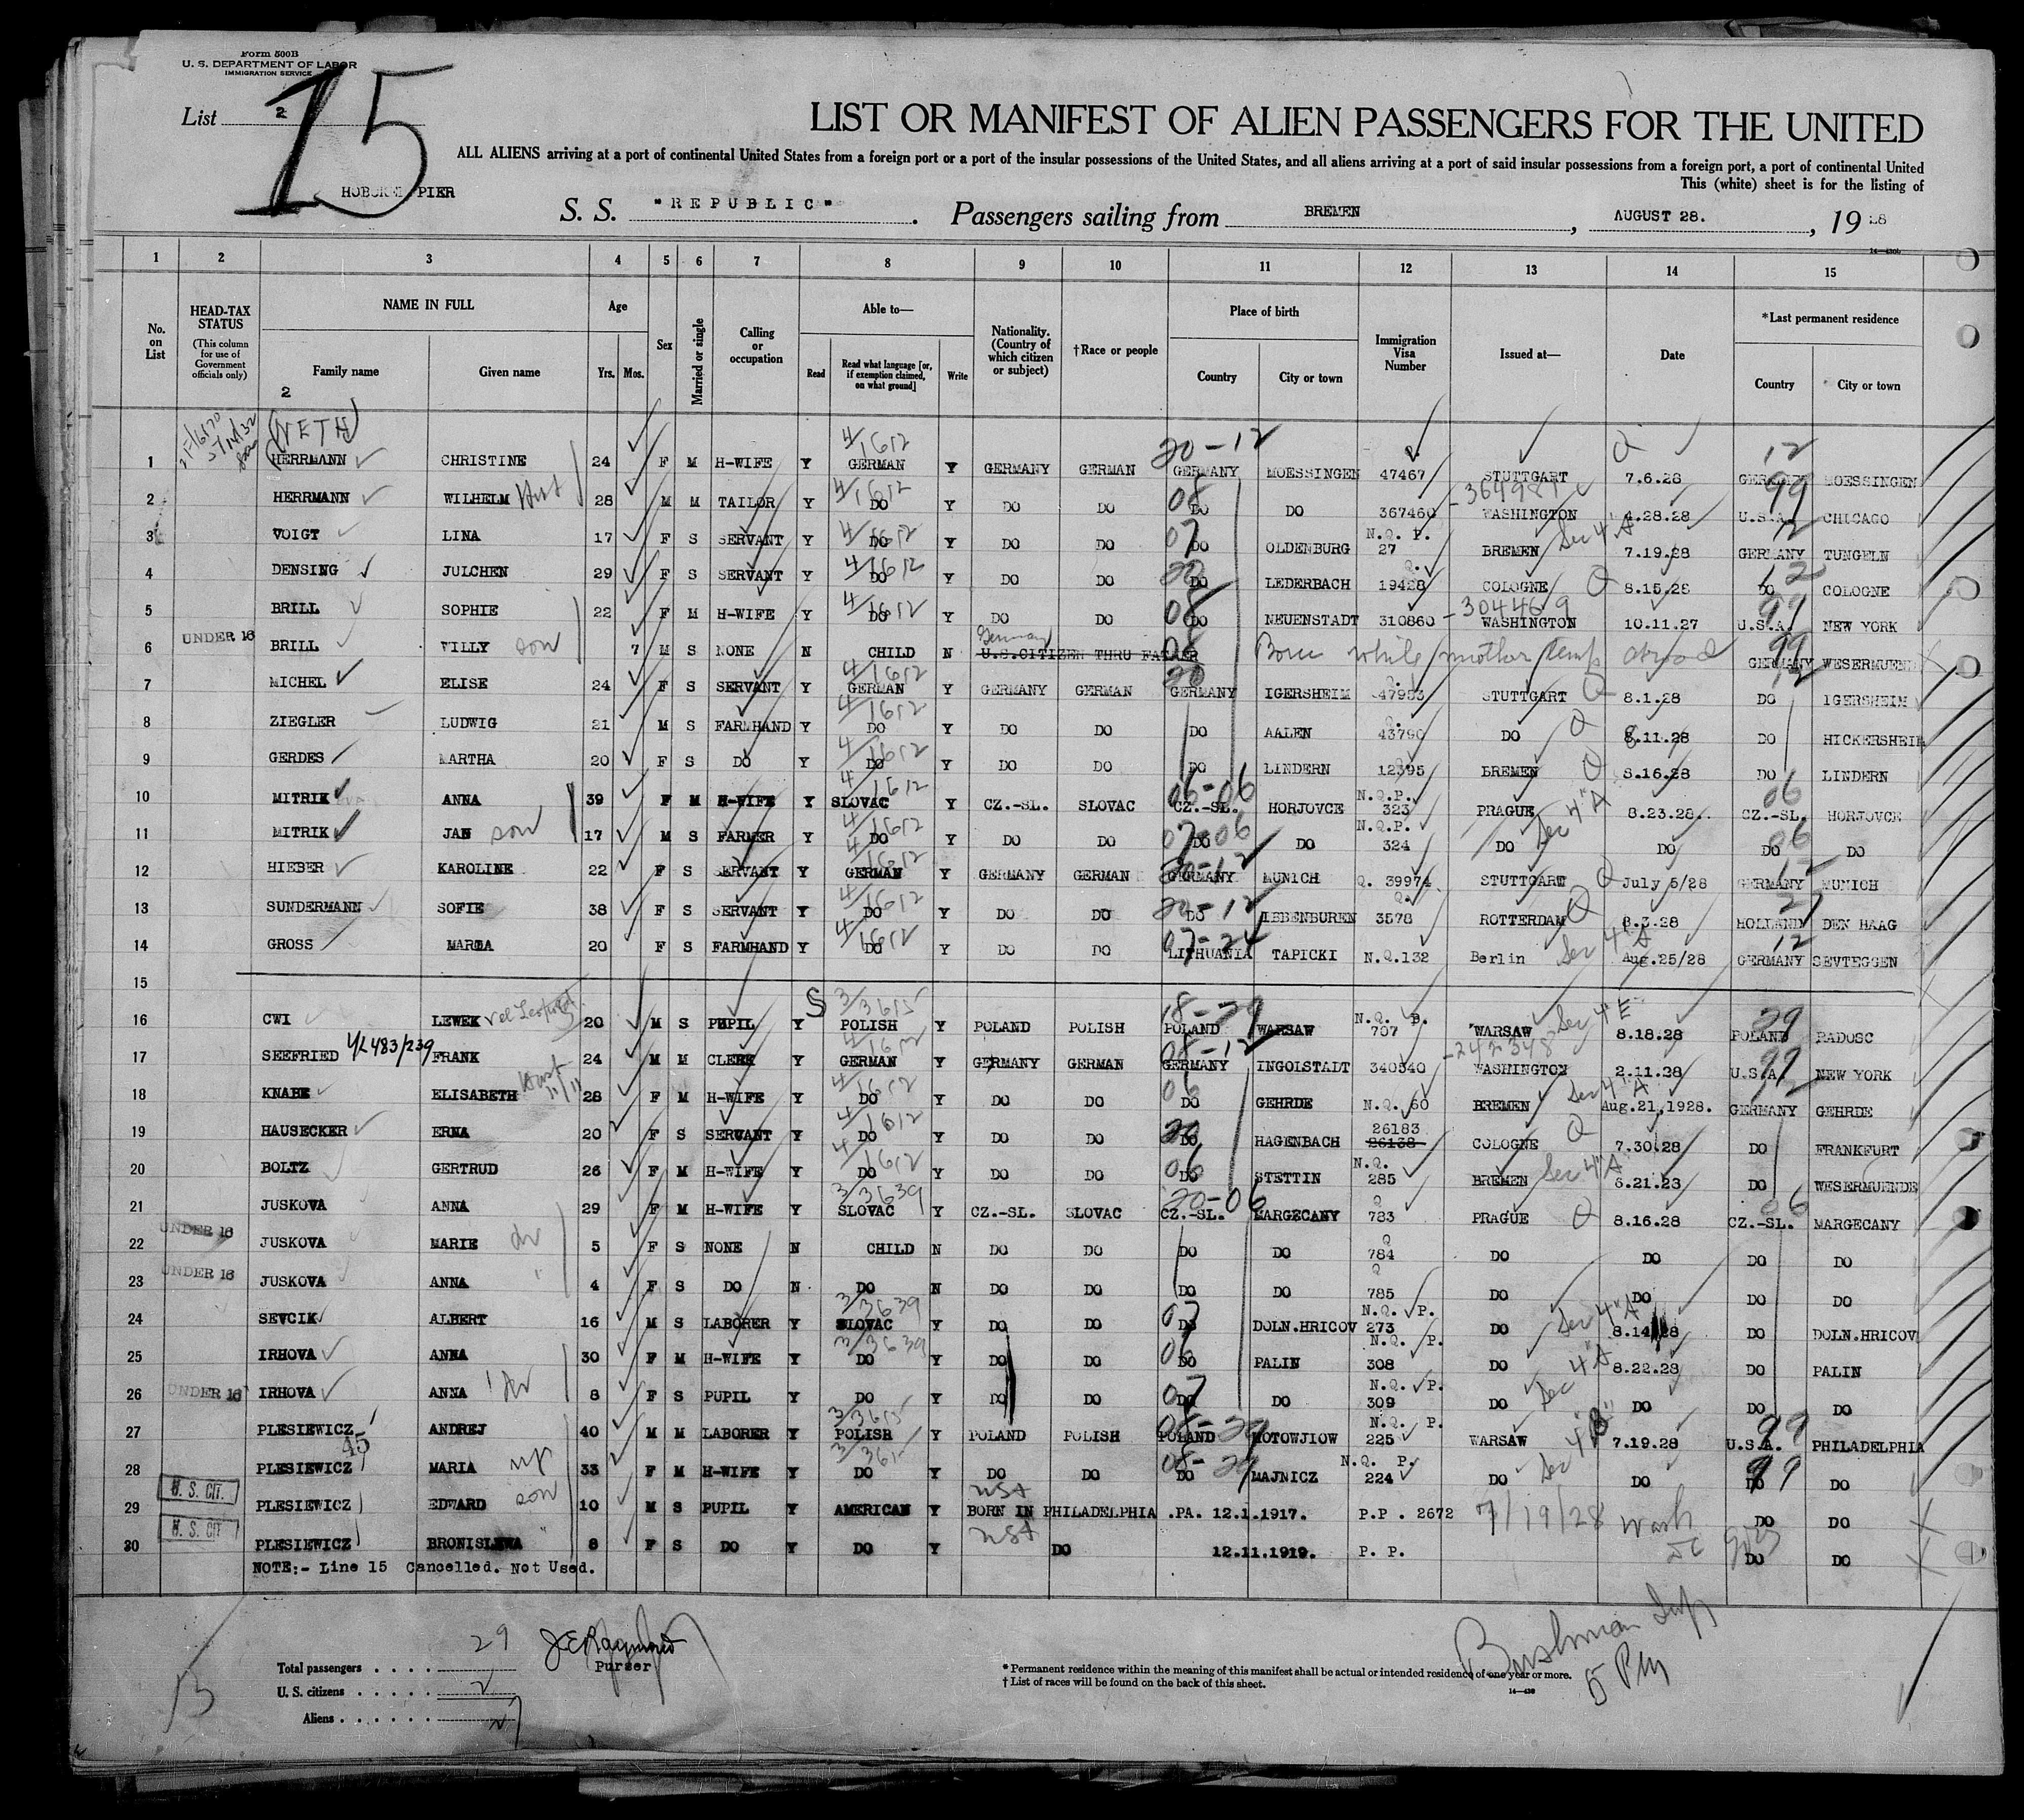 Form 500B
U. S. DEPARTMENT OF LABOR
IMMIGRATION SERVICE
List 2
15
HOBOKEN PIER
LIST OR MANIFEST OF ALIEN PASSENGERS FOR THE UNITED
ALL ALIENS arriving at a port of continental United States from a foreign port or a port of the insular possessions of the United States, and all aliens arriving at a port of said insular possessions from a foreign port, a port of continental United
This (white) sheet is for the listing of
S. S. "REPUBLIC". Passengers sailing from BREMEN, AUGUST 28., 19 28
14—430b
1 2 3 4 5 6 7 8 9 10 11 12 13 14 15
No. on List
HEAD-TAX STATUS (This column for use of Government officials only)
NAME IN FULL
Family name
Given name
2
Age
Yrs. Mos.
Sex
Married or single
Calling or occupation
Able to—
Read
Read what language [or, if exemption claimed, on what ground]
Write
Nationality. (Country of which citizen or subject)
†Race or people
Place of birth
Country
City or town
Immigration Visa Number
Issued at—
Date
*Last permanent residence
Country
City or town
(VETH)
4/1612 20-12 Q 12
1 HERRMANN CHRISTINE 24 F M H-WIFE Y GERMAN Y GERMANY GERMAN GERMANY MOESSINGEN 47467 STUTTGART 7.6.28 GERMANY MOESSINGEN
4/1612 08 -364981 99
2 HERRMANN WILHELM 28 M M TAILOR Y DO Y DO DO DO DO 367460 WASHINGTON 4.28.28 U.S.A. CHICAGO
4/1612 07 N.Q. P. Sec 4 "A" 12
3 VOIGT LINA 17 F S SERVANT Y DO Y DO DO DO OLDENBURG 27 BREMEN 7.19.28 GERMANY TUNGELN
4/1612 20 Q. Q 12
4 DENSING JULCHEN 29 F S SERVANT Y DO Y DO DO DO LEDERBACH 19428 COLOGNE 8.15.28 DO COLOGNE
4/1612 08 -304469 99
5 BRILL SOPHIE 22 F M H-WIFE Y DO Y DO DO DO NEUENSTADT 310860 WASHINGTON 10.11.27 U.S.A. NEW YORK
UNDER 16 German 99
6 BRILL WILLY son 7 M S NONE N CHILD N U.S.CITIZEN THRU FATHER Born while mother temp abroad GERMANY WESERMUENDE
4/1612 20 Q. Q 12
7 MICHEL ELISE 24 F S SERVANT Y GERMAN Y GERMANY GERMAN GERMANY IGERSHEIM 47953 STUTTGART 8.1.28 DO IGERSHEIM
4/1612 Q. Q
8 ZIEGLER LUDWIG 21 M S FARMHAND Y DO Y DO DO DO AALEN 43790 DO 8.11.28 DO HICKERSHEIM
4/1612 Q
9 GERDES MARTHA 20 F S DO Y DO Y DO DO DO LINDERN 12395 BREMEN 8.16.28 DO LINDERN
4/1612 06-06 N.Q.P. Sec 4 "A" 06
10 MITRIK ANNA 39 F M H-WIFE Y SLOVAC Y CZ.-SL. SLOVAC CZ.-SL. HORJOVCE 323 PRAGUE 8.23.28. CZ.-SL. HORJOVCE
4/1612 07-06 N.Q.P. 06
11 MITRIK JAN son 17 M S FARMER Y DO Y DO DO DO DO 324 DO DO DO DO
4/1612 20-12 Q 12
12 HIEBER KAROLINE 22 F S SERVANT Y GERMAN Y GERMANY GERMAN GERMANY MUNICH Q. 39974 STUTTGART July 5/28 GERMANY MUNICH
4/1612 20-12 Q. Q 21
13 SUNDERMANN SOFIE 38 F S SERVANT Y DO Y DO DO DO IBBENBUREN 3578 ROTTERDAM 8.3.28 HOLLAND DEN HAAG
4/1612 07-24 Sec 4 "A" 12
14 GROSS MARIA 20 F S FARMHAND Y DO Y DO DO LITHUANIA TAPICKI N.Q.132 Berlin Aug.25/28 GERMANY SEVTEGGEN
15
S 3/3615 18-29 N.Q. P. Sec 4 "E" 29
16 CWI LEWEK 20 M S PUPIL Y POLISH Y POLAND POLISH POLAND WARSAW 707 WARSAW 8.18.28 POLAND RADOSC
4/1612 08-12 -242348 99
17 SEEFRIED 4/L483/239 FRANK 24 M M CLERK Y GERMAN Y GERMANY GERMAN GERMANY INGOLSTADT 340540 WASHINGTON 2.11.28 U.S.A. NEW YORK
4/1612 06 Sec 4 "A" 12
18 KNABE ELISABETH 28 F M H-WIFE Y DO Y DO DO DO GEHRDE N.Q. 60 BREMEN Aug.21,1928. GERMANY GEHRDE
4/1612 20 26183 Q
19 HAUSECKER ERNA 20 F S SERVANT Y DO Y DO DO DO HAGENBACH 26138 COLOGNE 7.30.28 DO FRANKFURT
4/1612 06 N.Q. Sec 4 "A"
20 BOLTZ GERTRUD 26 F M H-WIFE Y DO Y DO DO DO STETTIN 285 BREMEN 6.21.23 DO WESERMUENDE
3/3639 20-06 Q Q 06
21 JUSKOVA ANNA 29 F M H-WIFE Y SLOVAC Y CZ.-SL. SLOVAC CZ.-SL. MARGECANY 783 PRAGUE 8.16.28 CZ.-SL. MARGECANY
UNDER 16 Q
22 JUSKOVA MARIE dr 5 F S NONE N CHILD N DO DO DO DO 784 DO DO DO DO
UNDER 16 Q
23 JUSKOVA ANNA " 4 F S DO N DO N DO DO DO DO 785 DO DO DO DO
3/3639 07 N.Q. P. Sec 4 "A"
24 SEVCIK ALBERT 16 M S LABORER Y SLOVAC Y DO DO DO DOLN.HRICOV 273 DO 8.14.28 DO DOLN.HRICOV
3/3639 06 N.Q. P. Sec 4 "A"
25 IRHOVA ANNA 30 F M H-WIFE Y DO Y DO DO DO PALIN 308 DO 8.22.28 DO PALIN
UNDER 16 07 N.Q. P.
26 IRHOVA ANNA dr 8 F S PUPIL Y DO Y DO DO DO DO 309 DO DO DO DO
3/3615 08-29 N.Q. P. Sec 4 "B" 99
27 PLESIEWICZ ANDREJ 40 M M LABORER Y POLISH Y POLAND POLISH POLAND MOTOWJIOW 225 WARSAW 7.19.28 U.S.A. PHILADELPHIA
45 3/3615 08-29 N.Q. P. 99
28 PLESIEWICZ MARIA wf 33 F M H-WIFE Y DO Y DO DO DO MAJNICZ 224 DO DO DO DO
U. S. CIT. USA
29 PLESIEWICZ EDWARD son 10 M S PUPIL Y AMERICAN Y BORN IN PHILADELPHIA .PA. 12.1.1917. P.P . 2672 7/19/28 Wash DC DO DO
U. S. CIT USA
30 PLESIEWICZ BRONISLEWA " 8 F S DO Y DO Y DO 12.11.1919. P. P. DO DO
NOTE:- Line 15 Cancelled. Not Used.
Total passengers . . . . 29
U. S. citizens . . . . . 2
Aliens . . . . . .
J E Raymond
Purser
* Permanent residence within the meaning of this manifest shall be actual or intended residence of one year or more.
† List of races will be found on the back of this sheet.
14—430
Bushman Insp
5 PM